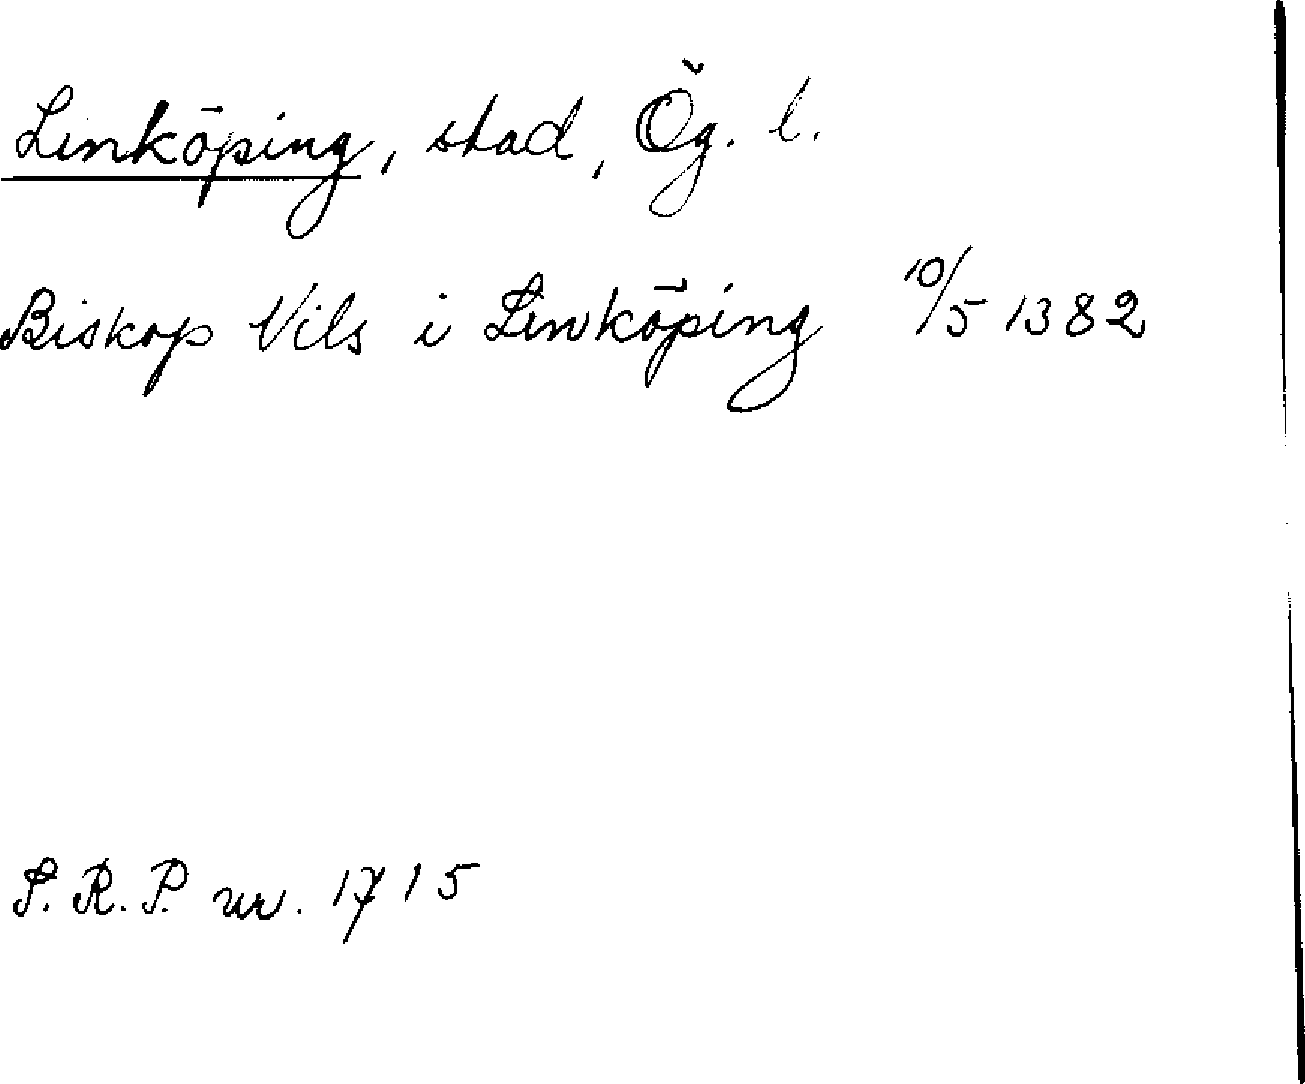 Linköping, stad, Ög. l.
Biskop Nils i Linköping 10/5 1382
S. R. P. nr. 1715